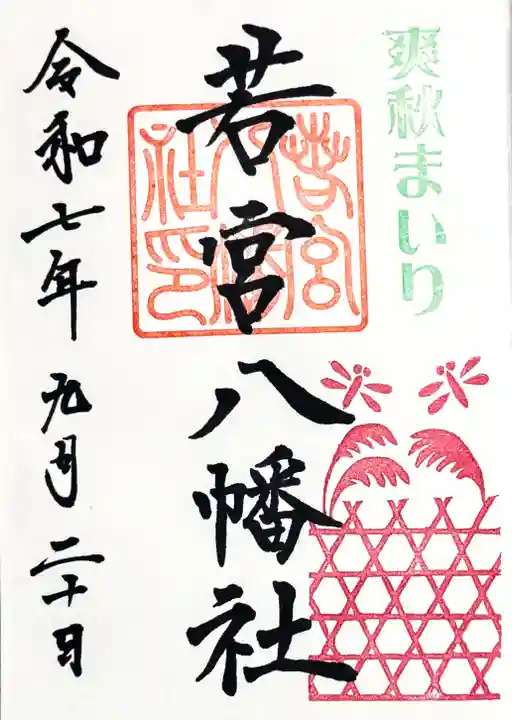 爽秋まいり
若宮八幡社
若宮八幡社印
令和七年 九月 二十日